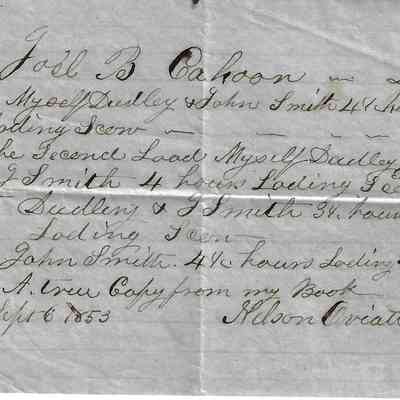 Joel B Cahoon
Myself Dudley & John Smith 4½ ho
oading Scow
he Second Load Myself Dudley
J Smith 4 hours Loding Sco
Dudley & J Smith 3½ hour
Loding Scow
John Smith 4½ hours Loding
A true Copy from my Book
Sept 6 1853 Nelson Oviatt